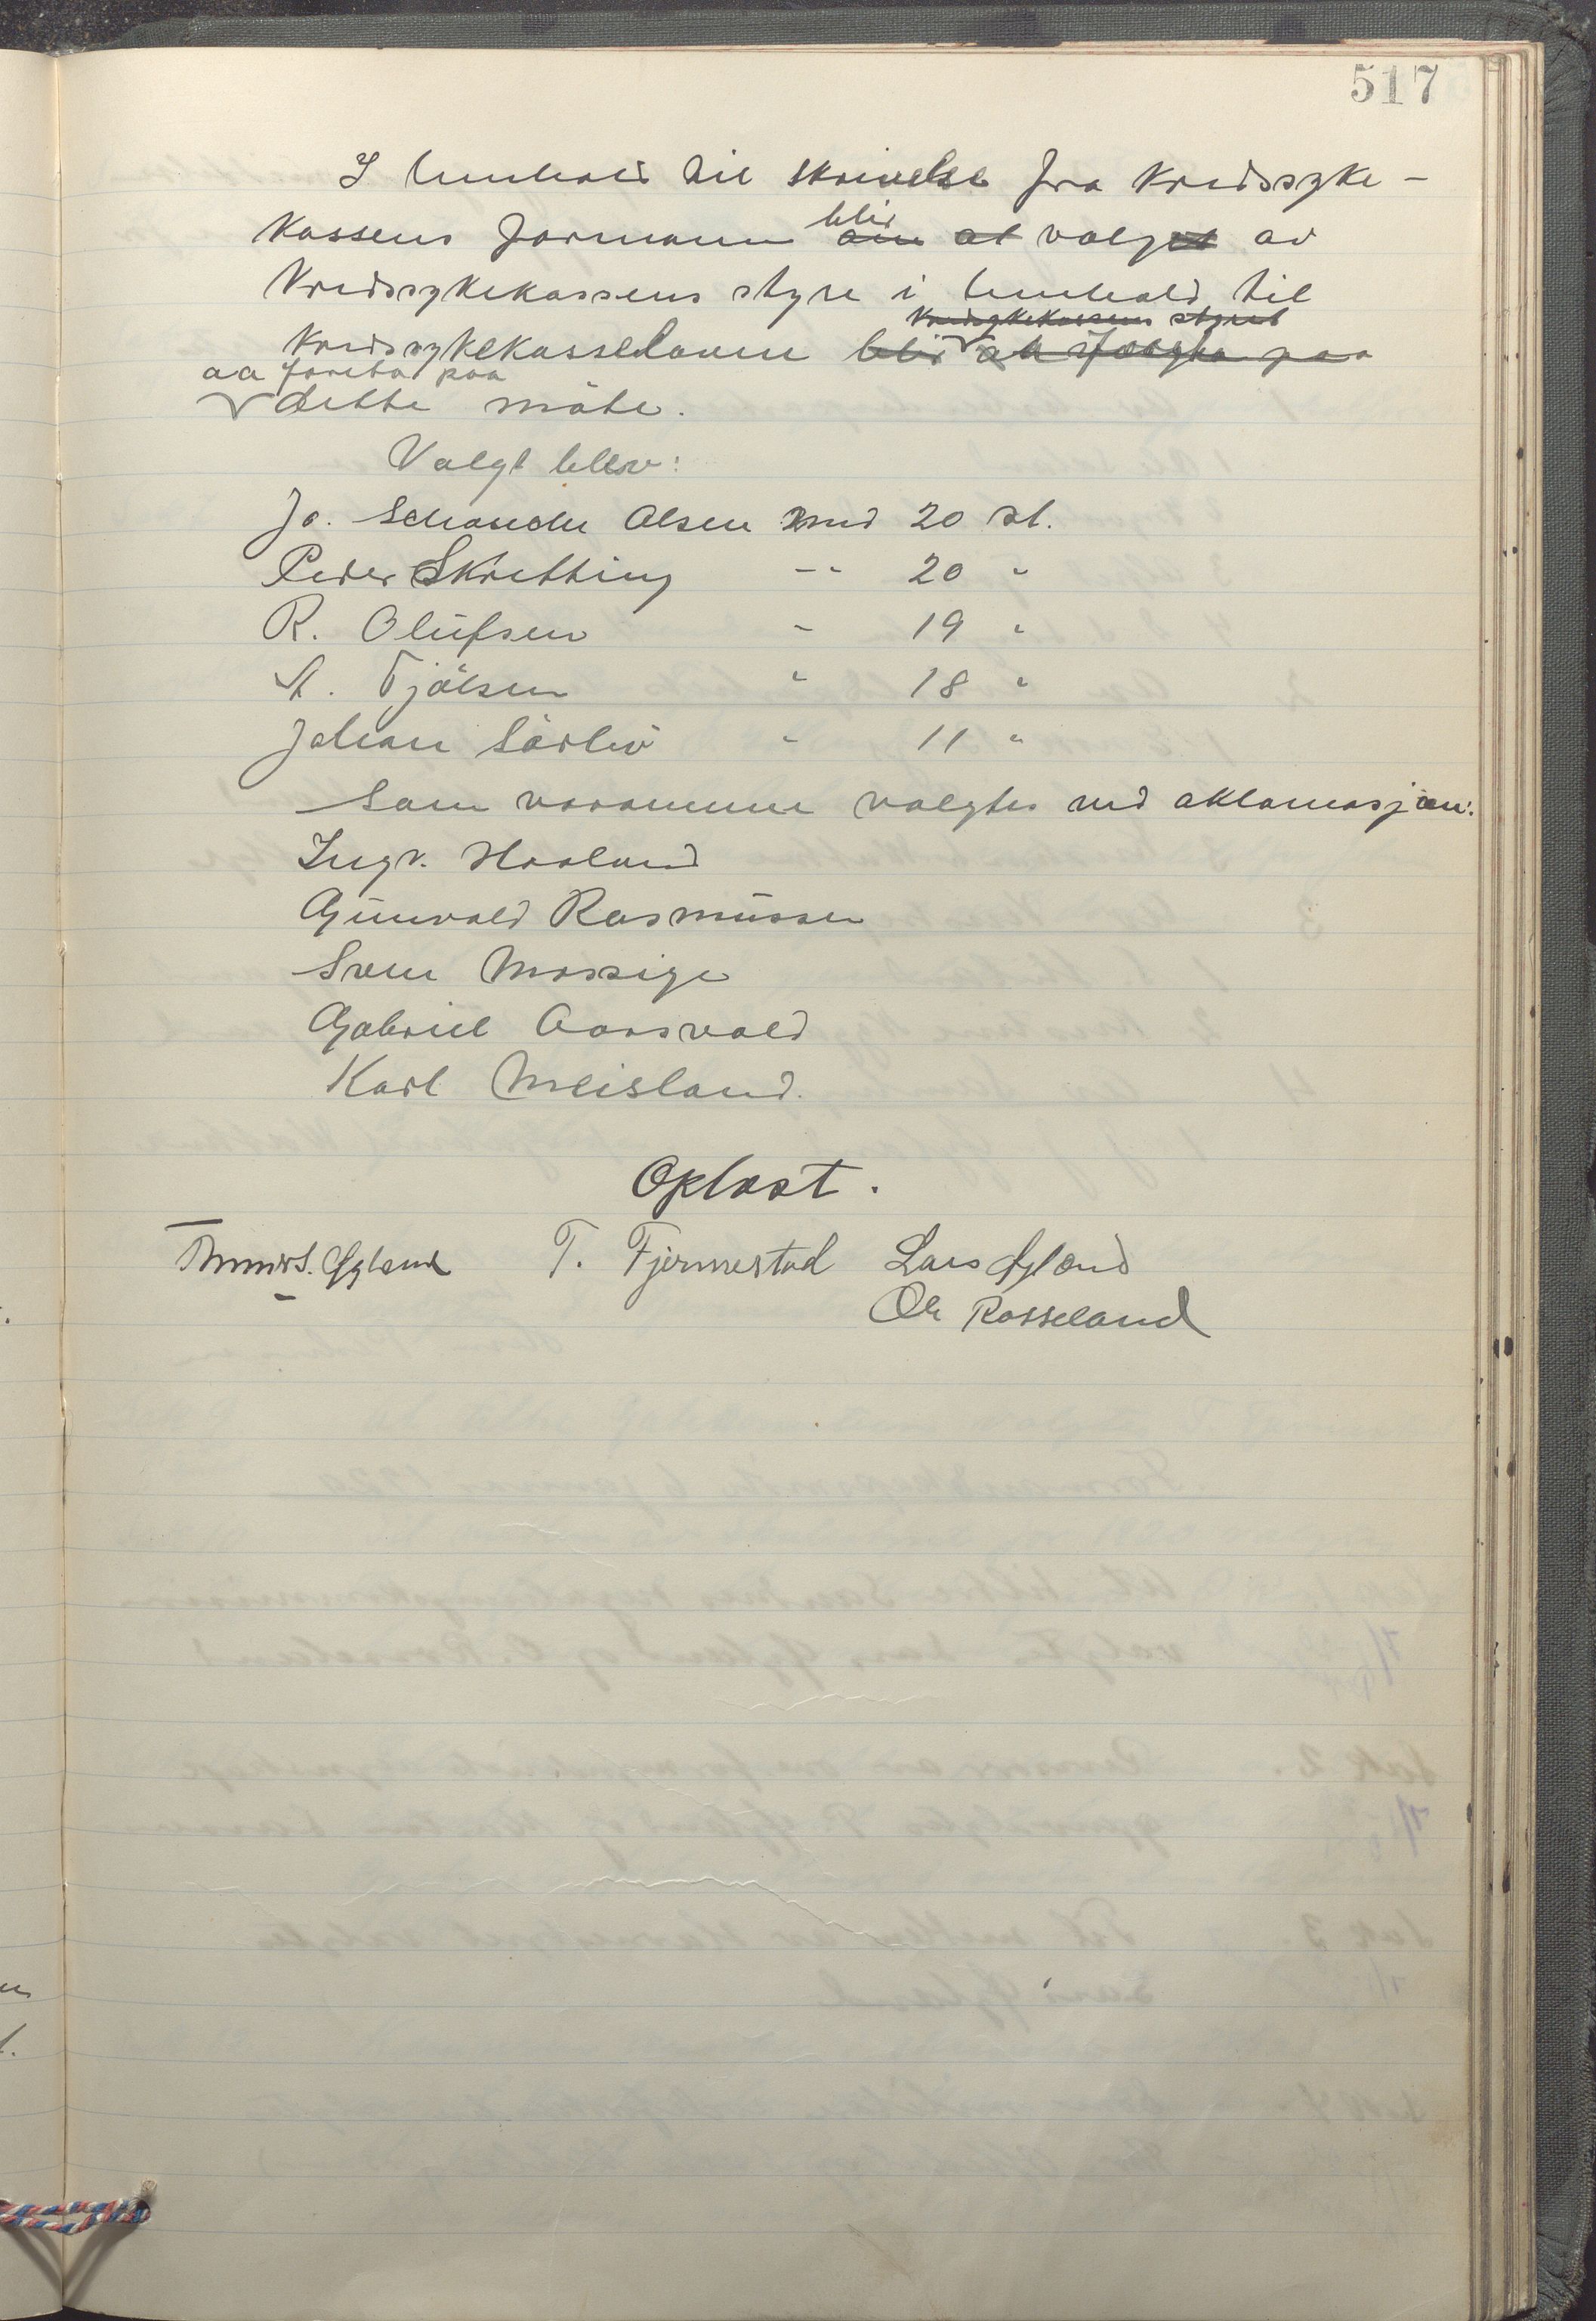 517
I henhold til skrivelse fra Kredssyke-
kassens formann blir om at valget av
Kredssykekassens styre i henhold til
Kredssykekassens styret
Kredssykekasseloven blir at foregaa paa
aa foreta paa
dette möte.
Valgt blev:
Jo. Schanche Olsen med 20 st.
Peder Skretting -" 20 "
R. Olufsen " 19 "
A. Tjölsen " 18 "
Johan Sörbö " 11 "
Som varamenn valgtes ved aklamasjon:
Ingv. Haaland
Gunvald Rasmussen
Sven Mossige
Gabriel Aarsvold
Karl Meisland.
Oplæst.
Gyland T. Fjermestad Lars Gyland
Ole Rosseland